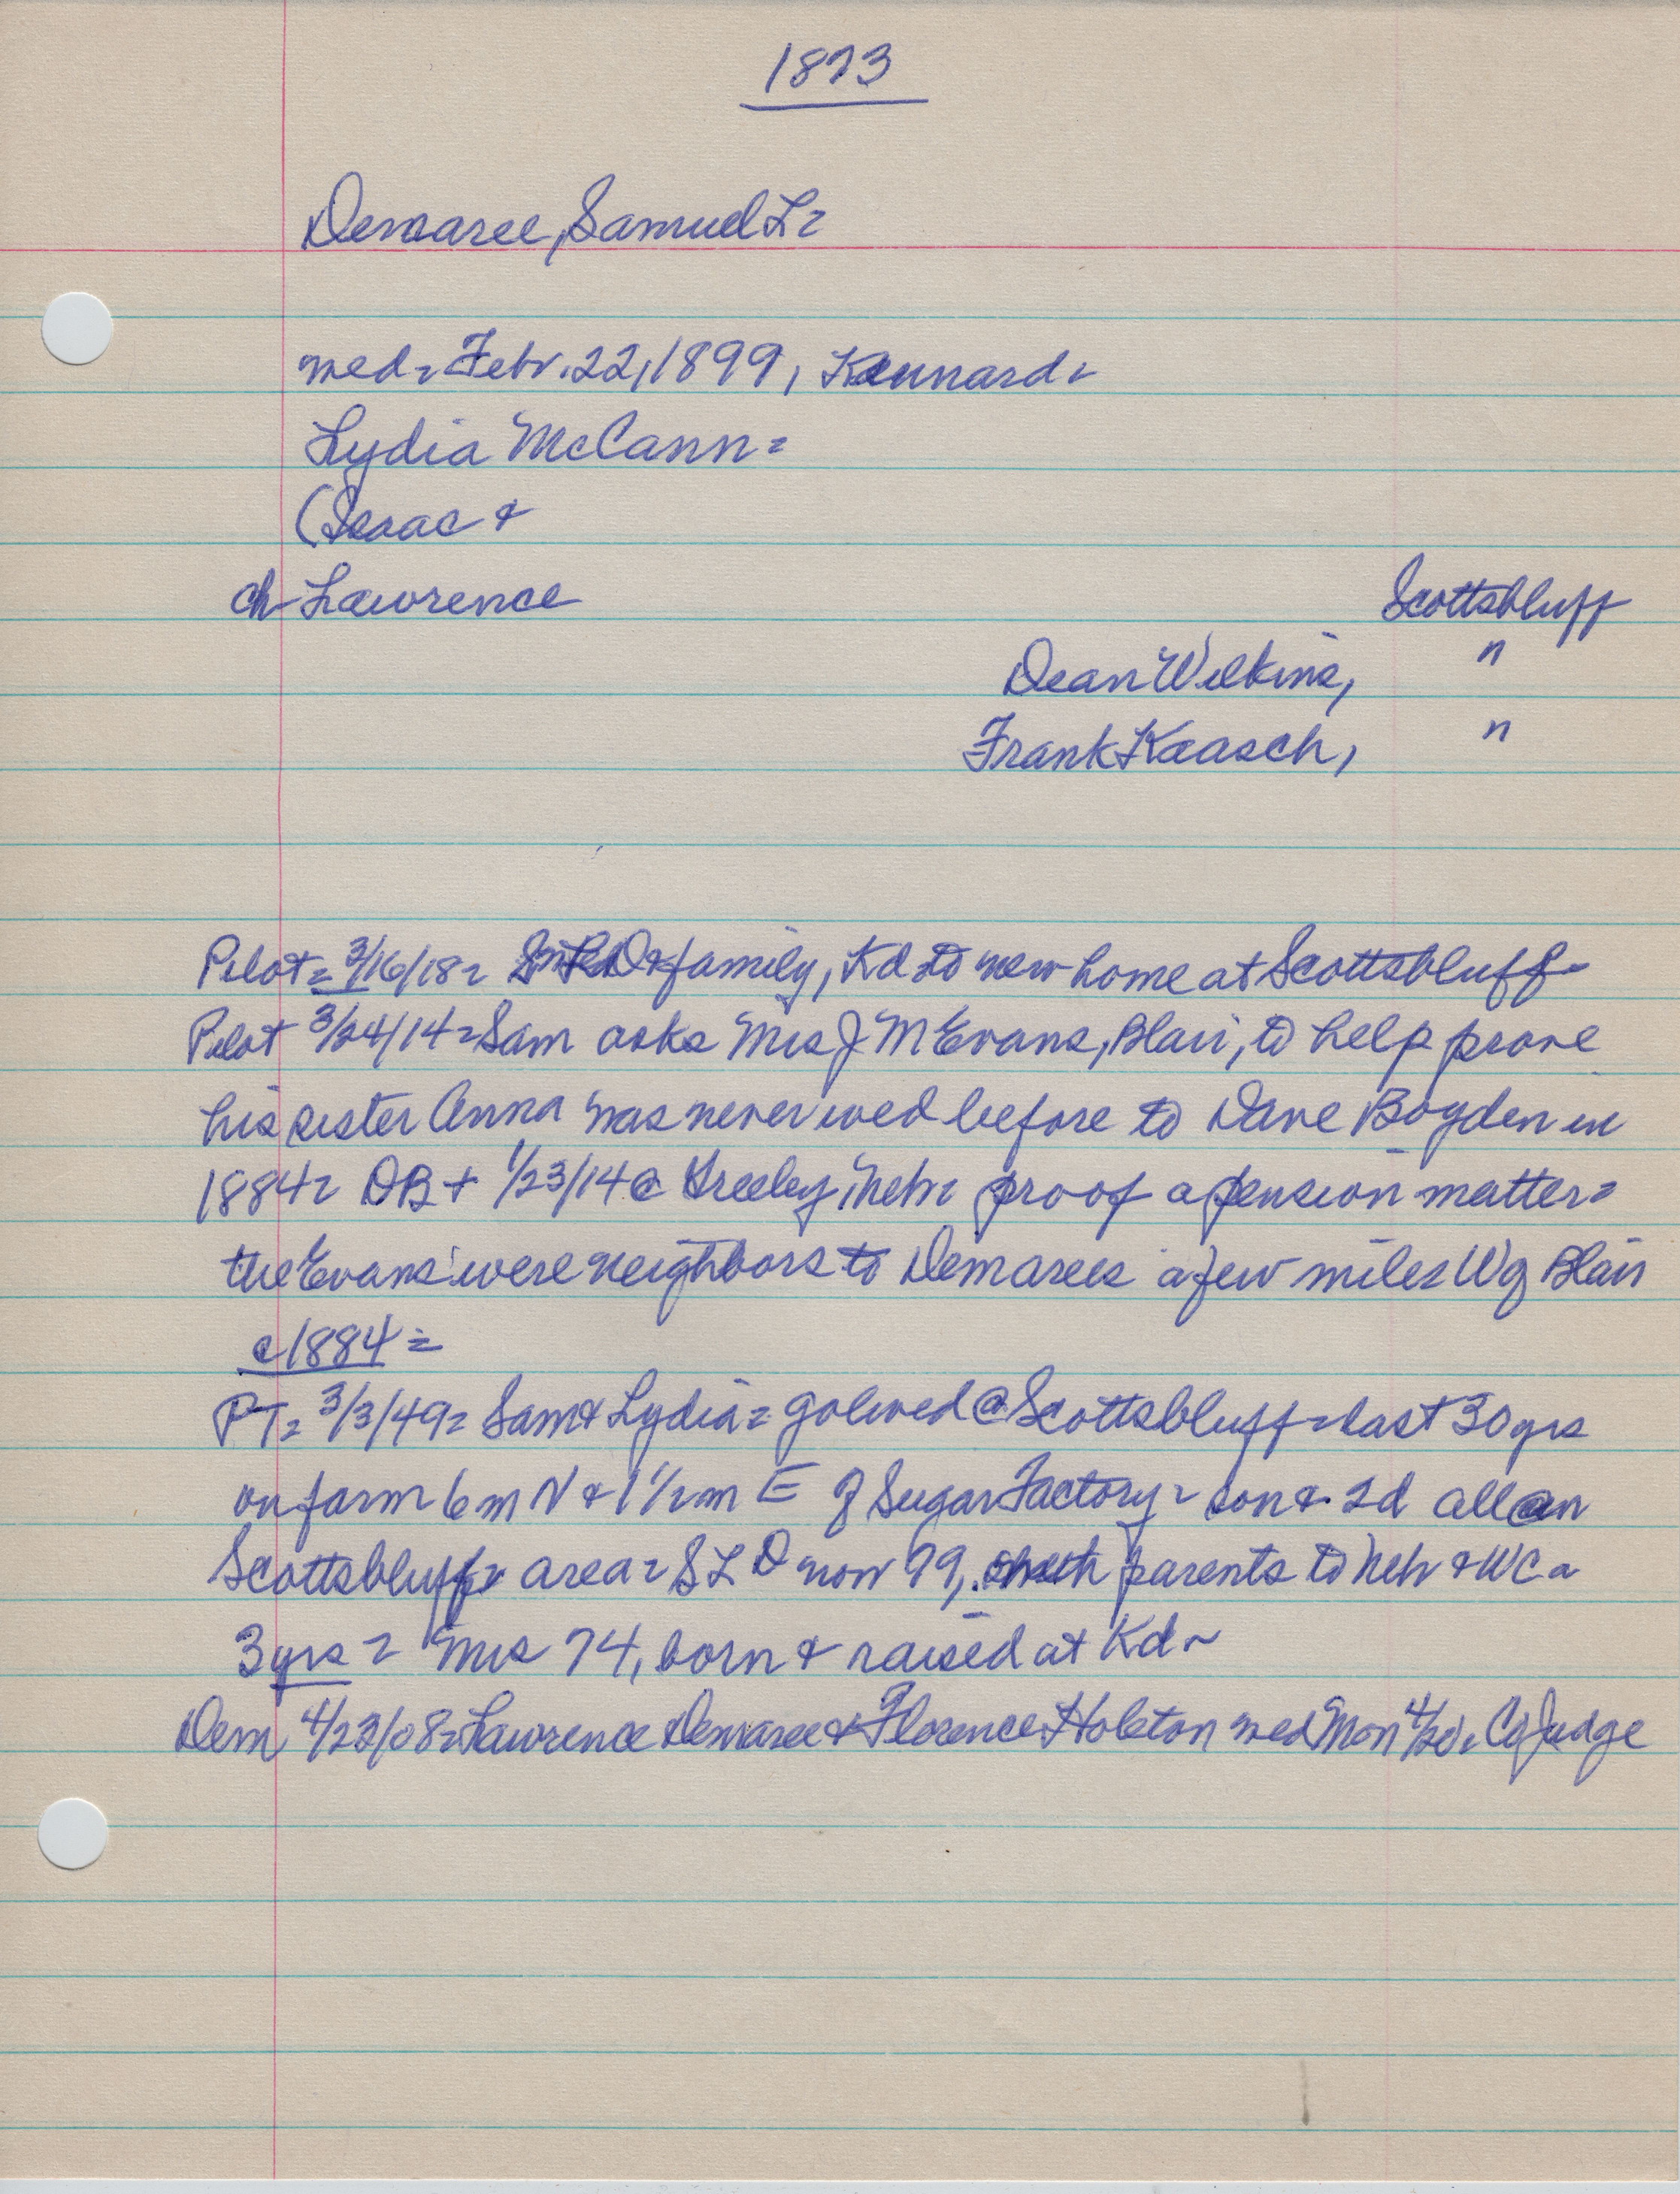 1873
Demaree, Samuel L=
wed= Febr. 22, 1899, Kennard=
Lydia McCann=
(Isaac &
ch Lawrence
Scottsbluff
Dean Wilkins, "
Frank Kaasch, "
Pilot= 3/16/18= D & family, Kd to new home at Scottsbluff-
Pilot 3/24/14= Sam asks Mrs J M Evans, Blair, to help prove
his sister Anna was never wed before to Dave Boyden in
1884= DB + 1/23/14 @ Greeley, Nebr= proof a pension matter=
the Evans' were neighbors to Demarees a few miles W of Blair
c1884=
PT= 3/3/49= Sam & Lydia= golwed @ Scottsbluff= last 30 yrs
on farm 6 m N & 1 1/2 m E of Sugar Factory= son & 2d all @ in
Scottsbluff area= S L D now 79, parents to Neb & WC @
3 yrs= Mrs 74, born & raised at Kd~
Dem 4/23/08= Lawrence Demaree & Florence Holston wed Mon 4/20, Co Judge